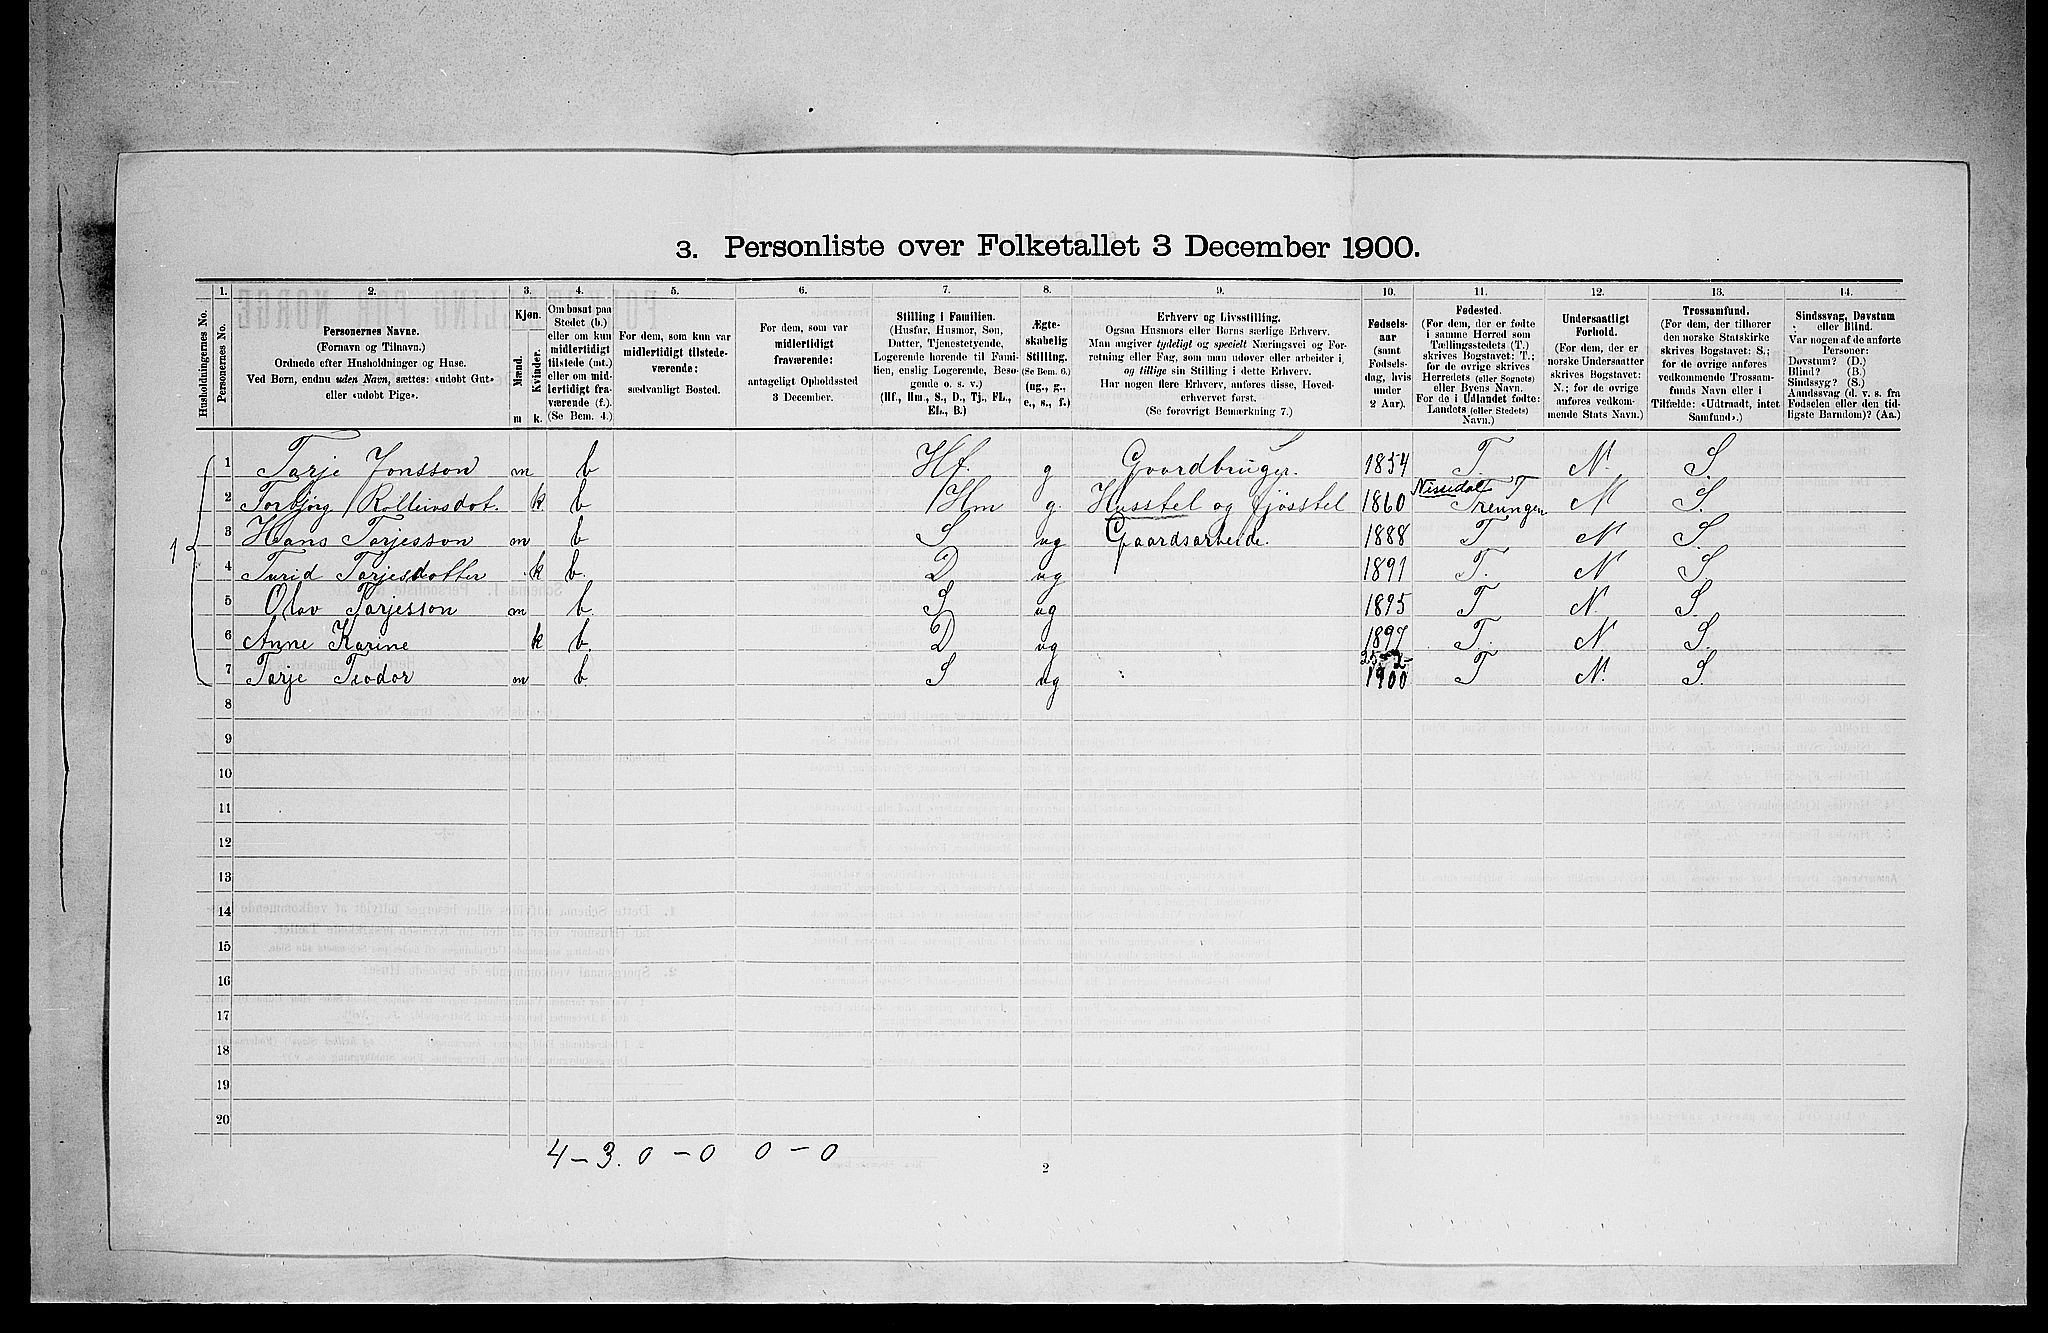 3. Personliste over Folketallet 3 December 1900.
1. 2. 3. 4. 5. 6. 7. 8. 9. 10. 11. 12. 13. 14.
Husholdningernes No.
Personernes No.
Personernes Navne.
(Fornavn og Tilnavn.)
Ordnede efter Husholdninger og Huse.
Ved Børn, endnu uden Navn, sættes: «udøbt Gut»
eller «udøbt Pige».
Kjøn.
Mænd.
Kvinder.
m k.
Om bosat paa
Stedet (b.)
eller om kun
midlertidigt
tilstede (mt.)
eller om mid-
lertidigt fra-
værende (f.)
(Se Bem. 4.)
For dem, som kun var
midlertidigt tilstede-
værende:
sædvanligt Bosted.
For dem, som var
midlertidigt
fraværende:
antageligt Opholdssted
3 December.
Stilling i Familien.
(Husfar, Husmor, Søn,
Datter, Tjenestetyende,
Logerende hørende til Fami-
lien, enslig Logerende, Besø-
gende o. s. v.)
(Hf., Hm., S., D., Tj., FL.,
EL., B.)
Ægte-
skabelig
Stilling.
(Se Bem. 6.)
(ug., g.,
e., s., f.)
Erhverv og Livsstilling.
Ogsaa Husmors eller Børns særlige Erhverv.
Man angiver tydeligt og specielt Næringsvei og For-
retning eller Fag, som man udøver eller arbeider i,
og tillige sin Stilling i dette Erhverv.
Har nogen flere Erhverv, anføres disse, Hoved-
erhvervet først.
(Se forøvrigt Bemærkning 7.)
Fødsels-
aar
(samt
Fødsels-
dag, hvis
under
2 Aar).
Fødested.
(For dem, der er fødte
i samme Herred som
Tællingsstedets (T.)
skrives Bogstavet: T.;
for de øvrige skrives
Herredets (eller Sognets)
eller Byens Navn.
For de i Udlandet fødte:
Landets (eller Stedets)
Navn.)
Undersaatligt
Forhold.
(For dem, der er
norske Undersaatter
skrives Bogstavet:
N.; for de øvrige
anføres vedkom-
mende Stats Navn.)
Trossamfund.
(For dem, der tilhører
den norske Statskirke
skrives Bogstavet: S.;
for de øvrige anføres
vedkommende Trossam-
funds Navn eller i
Tilfælde: «Udtraadt, intet
Samfund».)
Sindssvag, Døvstum
eller Blind.
Var nogen af de anførte
Personer:
Døvstum? (D.)
Blind? (B.)
Sindssyg? (S.)
Aandssvag (d. v. s. fra
Fødselen eller den tid-
ligste Barndom)? (Aa.)
1
1 Tarje Jonsson m b Hf. g Gaardbruger. 1854 T. N. S.
2 Torbjørg Rolleivsdot. k b Hm g. Husstel og fjøsstel 1860 Nissedal T Treungen N S.
3 Hans Tarjesson m b S ug Gaardsarbeide. 1888 T N S.
4 Turid Tarjesdotter k b. D ug 1891 T. N S.
5 Olav Tarjesson m b. S ug 1895 T N. S.
6 Anne Karine k b. D ug 1897 T. N. S.
7 Tarje Teodor m b S ug 25-2-1900 T N. S.
8
9
10
11
12
13
14
15
16
17
18
19
20
4-3. 0-0 0-0
2